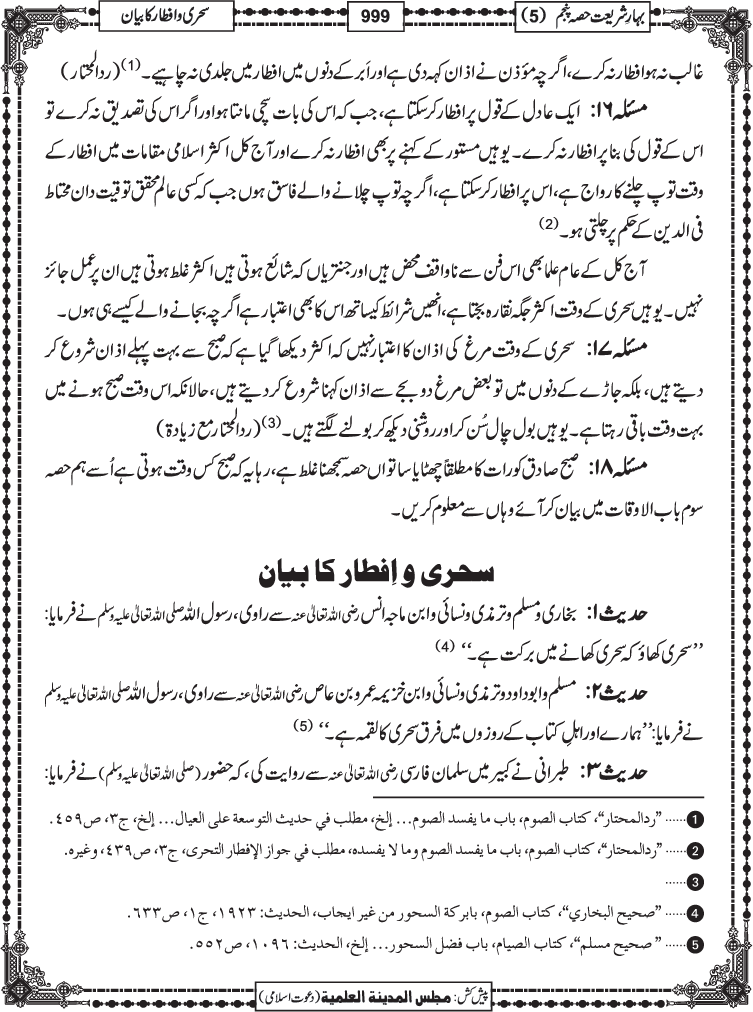 بہار شریعت حصہ پنجم (5)
999
سحری و افطار کا بیان
غالب نہ ہو افطار نہ کرے، اگرچہ مؤذن نے اذان کہہ دی ہے اور اَبر کے دنوں میں افطار میں جلدی نہ چاہیے۔(1) (ردالمحتار)
مسئلہ ۱۶: ایک عادل کے قول پر افطار کر سکتا ہے، جب کہ اس کی بات سچی مانتا ہو اور اگر اس کی تصدیق نہ کرے تو
اس کے قول کی بنا پر افطار نہ کرے۔ یوہیں مستور کے کہنے پر بھی افطار نہ کرے اور آج کل اکثر اسلامی مقامات میں افطار کے
وقت توپ چلنے کا رواج ہے، اس پر افطار کر سکتا ہے، اگرچہ توپ چلانے والے فاسق ہوں جب کہ کسی عالم محقق توقیت دان محتاط
فی الدین کے حکم پر چلتی ہو۔(2)
آج کل کے عام علما بھی اس فن سے ناواقف محض ہیں اور جنتریاں کہ شائع ہوتی ہیں اکثر غلط ہوتی ہیں ان پر عمل جائز
نہیں۔ یوہیں سحری کے وقت اکثر جگہ نقارہ بجتا ہے، انھیں شرائط کیساتھ اس کا بھی اعتبار ہے اگرچہ بجانے والے کیسے ہی ہوں۔
مسئلہ ۱۷: سحری کے وقت مرغ کی اذان کا اعتبار نہیں کہ اکثر دیکھا گیا ہے کہ صبح سے بہت پہلے اذان شروع کر
دیتے ہیں، بلکہ جاڑے کے دنوں میں تو بعض مرغ دو بجے سے اذان کہنا شروع کر دیتے ہیں، حالانکہ اس وقت صبح ہونے میں
بہت وقت باقی رہتا ہے۔ یوہیں بول چال سُن کر اور روشنی دیکھ کر بولنے لگتے ہیں۔(3) (ردالمحتار مع زیادۃ)
مسئلہ ۱۸: صبح صادق کو رات کا مطلقاً چھٹا یا ساتواں حصہ سمجھنا غلط ہے، رہا یہ کہ صبح کس وقت ہوتی ہے اُسے ہم حصہ
سوم باب الاوقات میں بیان کر آئے وہاں سے معلوم کریں۔
سحری و اِفطار کا بیان
حدیث ۱: بخاری و مسلم و ترمذی و نسائی و ابن ماجہ انس رضی اللہ تعالیٰ عنہ سے راوی، رسول اللہ صلی اللہ تعالیٰ علیہ وسلم نے فرمایا:
’’سحری کھاؤ کہ سحری کھانے میں برکت ہے۔‘‘ (4)
حدیث ۲: مسلم و ابو داود و ترمذی و نسائی و ابن خزیمہ عمرو بن عاص رضی اللہ تعالیٰ عنہ سے راوی، رسول اللہ صلی اللہ تعالیٰ علیہ وسلم
نے فرمایا: ’’ہمارے اور اہلِ کتاب کے روزوں میں فرق سحری کا لقمہ ہے۔‘‘ (5)
حدیث ۳: طبرانی نے کبیر میں سلمان فارسی رضی اللہ تعالیٰ عنہ سے روایت کی، کہ حضور (صلی اللہ تعالیٰ علیہ وسلم) نے فرمایا:
1 ...... ”ردالمحتار“، کتاب الصوم، باب ما یفسد الصوم... إلخ، مطلب في حدیث التوسعة علی العیال... إلخ، ج۳، ص۴۵۹.
2 ...... ”ردالمحتار“، کتاب الصوم، باب ما یفسد الصوم وما لا یفسده، مطلب في جواز الإفطار التحری، ج۳، ص۴۳۹، وغیره.
3 ......
4 ...... ”صحیح البخاري“، کتاب الصوم، باب برکة السحور من غیر ایجاب، الحدیث: ۱۹۲۳، ج۱، ص۶۳۳.
5 ...... ” صحیح مسلم“، کتاب الصیام، باب فضل السحور... إلخ، الحدیث: ۱۰۹۶، ص۵۵۲.
پیش کش: مجلس المدینة العلمیة (دعوت اسلامی)